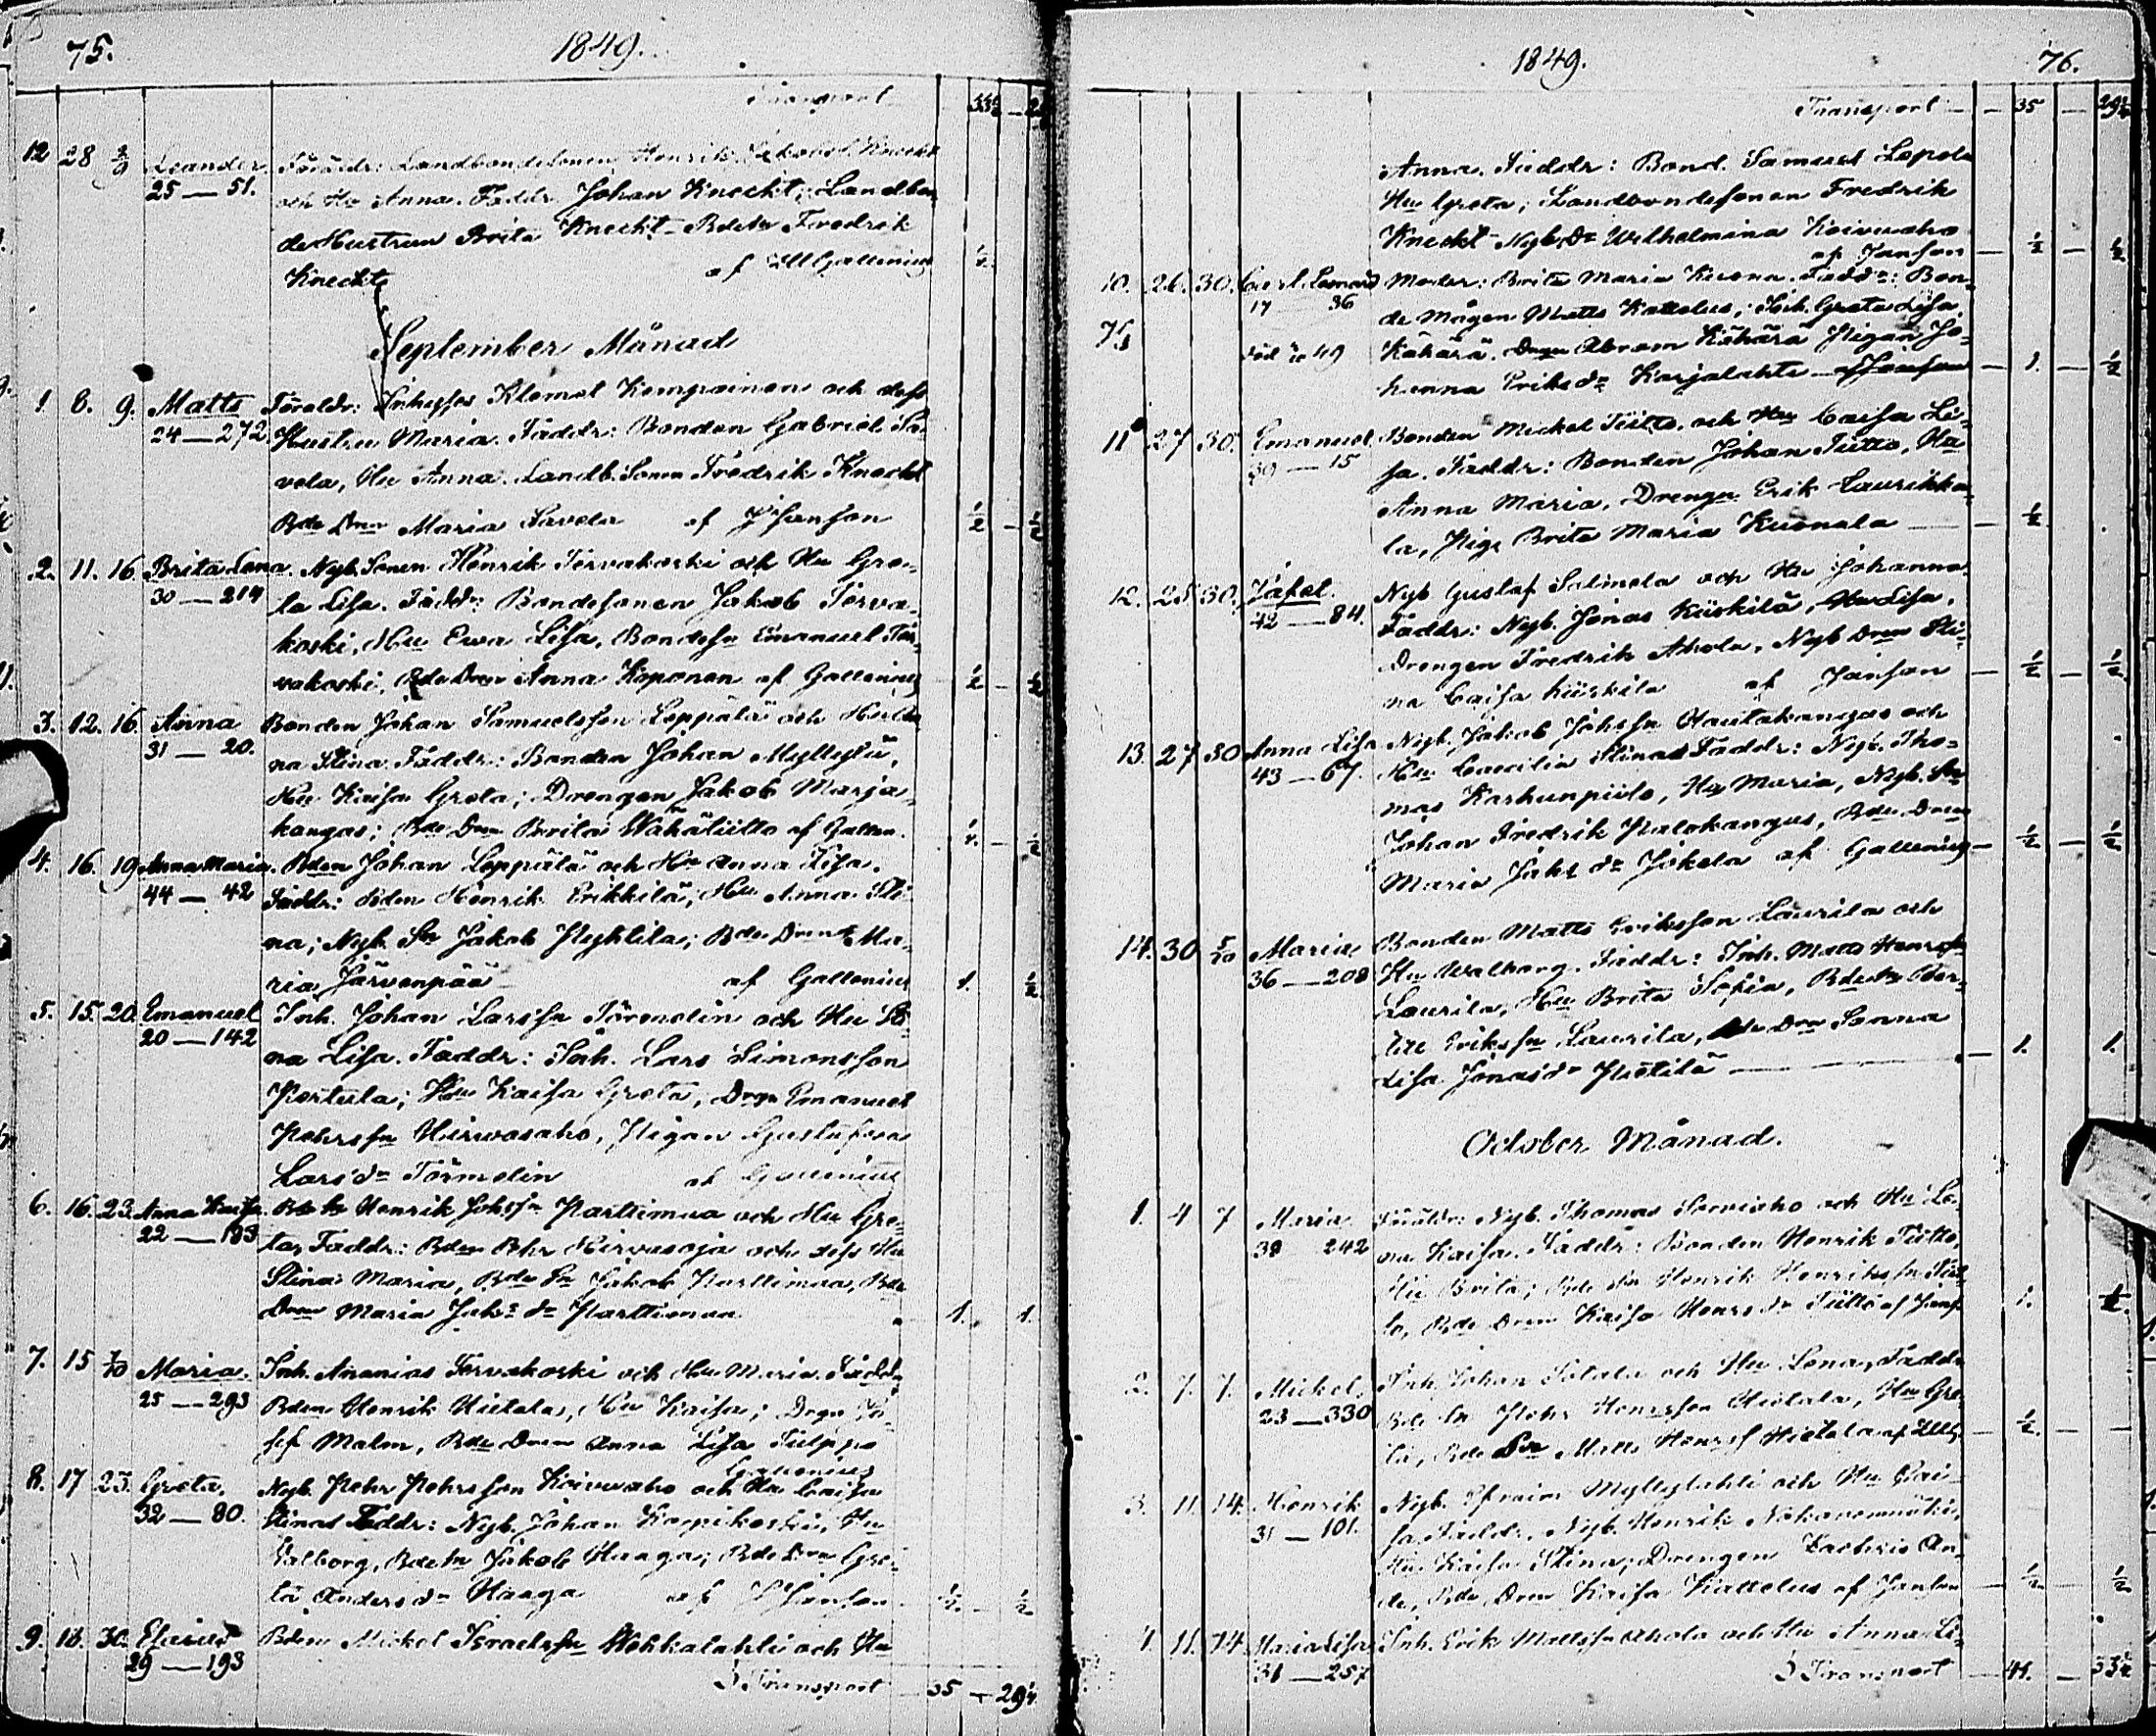 75. 1849.
Transport 33½ — 2
12 28 2/9 Leander Föräldr: Landbondesonen Henrik Jakobss. Knecht
25 — 51. och Hu Anna. Faddr. Johan Knecht, Landbon
de Hustrun Brita Knecht – Bdesn Fredrik
Knecht af Gallenius ½
September Månad
1. 8. 9. Matts Föräldr: Inhyses Klemet Kemprainen och dess
24 — 272. Hustru Maria. Faddr: Bonden Gabriel Sa-
vela, Hu Anna. Landb. Sonen Fredrik Knecht
Bde Drn Maria Savela af Janson ½ — ½
2. 11. 16. Brita Lena. Nyb. Sonen Henrik Torvakoski och Hu Gre-
30 — 214 ta Lisa. Faddr: Bondesonen Jakob Torva-
koski, Hu Ewa Lisa, Bondesn Emanuel Tor-
vakoski, Bde Drn Anna Koponen af Gallenius ½ — ½
3. 12. 16. Anna Bonden Johan Samuelsson Leppälä och Hu
31 — 20. na Stina. Faddr: Bonden Johan Myllylä,
Hu Kaisa Greta; Drengen Jakob Marja-
kangas; Bde Drn Brita Wähätiitto af Gallen. ½ — ½
4. 16. 19. Anna Maria. Bden Johan Leppälä och Hu Anna Lisa.
44 — 42 Faddr: Bden Henrik Erikkilä, Hu Anna Sti-
na; Nyb. Sn Jakob Pyhtila; Bde Drn Ma-
ria Järvenpää af Gallenius 1. ½
5. 15. 20. Emanuel Inh. Johan Larssn Törmelin och Hu Sti-
20 — 142 na Lisa. Faddr: Inh. Lars Simonsson
Pertula; Hu Kaisa Greta, Drgn Emanuel
Pehrssn Hirwasaho, Pigan Gustafva
Larsdr Törmelin af Gallenius
6. 16. 23. Anna Kaisa. Bdesn Henrik Johssn Parttimaa och Hu Gre-
22 — 183 ta, Faddr: Bden Pehr Hirvasoja och dess Hu
Stina Maria, Bde Sn Jakob Parttimaa, Bde
Drn Maria Jaksdr Parttimaa 1. 1.
7. 15 7/10 Maria. Inh. Ananias Torvakoski och Hu Maria. Faddr
25 — 293 Bden Henrik Hietala, Hu Kaisa; Drgn Jo-
sef Malm, Bde Drn Anna Lisa Tulppo
Gallenius
8. 17 23. Greta. Nyb. Pehr Pehrsson Koivuaho och Hu Caisa
32 — 80. Stina. Faddr: Nyb. Johan Korpikoski, Hu
Valborg, Bdesn Jakob Haaga; Bde Drn Gre-
ta Andersdr Haaga af Janson ½. — ½
9. 18. 30. Esaias Bden Mickel Israelssn Wehkalahti och Hu
29 — 193
Transport 35 — 29½
1849. 76.
Transport — 35 — 29½
Anna. Faddr: Bond. Samuel Lepola
Hu Greta; Landbondesonen Fredrik
Knecht Nyb. Dr Wilhelmina Koivuaho
af Janson — ½ — ½
10. 26. 30. Carl Leonard Moder: Brita Maria Kuona. Faddr: Bon-
17 36 de Mågen Matts Kattelus; Inh. Greta Lisa
död 49 Kähärä. Drgn Abram Kähärä Pigan Jo-
hanna Eriksdr Karjalahti af Janson — 1. — ½
11 27 30. Emanuel Bonden Mickel Tiitto, och Hu Caisa Li-
39 — 15 sa. Faddr: Bonden Johan Tiitto, Hu
Anna Maria, Drengn Erik Laurikka-
la, Pign Brita Maria Kuonala — ½
12. 25 30. Jafet. Nyb Gustaf Salmela och Hu Johanna.
42 — 84. Faddr: Nyb. Jonas Kiiskilä, Hu Lisa,
Drengen Fredrik Ahola, Nyb Drn Sti-
na Caisa Kiiskilä af Janson — ½ — ½
13. 27 30 Anna Lisa Nyb. Jakob Johssn Hautakangas och
43 — 67. Hu Caecilia Stina. Faddr: Nyb. Tho-
mas Karhunpiilo, Hu Maria, Nyb. Sn
Johan Fredrik Palokangas, Bde Drn
Maria Jaksdr Jokela af Gallenius — ½ — ½
14. 30 5/10 Maria Bonden Matts Eriksson Laurila och
36 — 208 Hu Walborg. Faddr: Inh. Matts Henrssn
Laurila, Hu Brita Sofia, Bdesn
Erikssn Laurila, Bde Drn Sanna
Lisa Jonasdr Pietilä — 1. 1.
October Månad.
1. 4 7 Maria Föräldr: Nyb. Thomas Sarviaho och Hu Le-
38 242 na Kaisa. Faddr: Bonden Henrik Tiitto,
Hu Brita; Bde Sn Henrik Henrikssn Tiit-
to, Bde Drn Kaisa Henrsdr Tiitto af Jans. 1. ½.
2. 7. 7. Mickel Inh. Johan Sotala och Hu Lena, Faddr
23 — 330 Bde Sn Pehr Henrsson Hietala, Hu Gre-
ta, Bde Sn Matts Henrss Hietala — ½. — —
3. 11. 14. Henrik Nyb. Efraim Myllylahti och Hu Kai-
31 — 101. sa. Faddr. Nyb. Henrik
Hu Kaisa Stina; Drengen Zachris An-
de, Bde Drn Kaisa Kattelus af Janson — ½ — ½
4. 11. 14. Maria Lisa Inh. Erik Mattssn Ahola och Hu Anna Li-
31 — 257
Transport — 41. — 33½